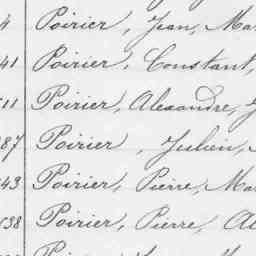 4 Poirier, Jean, Ma
41 Poirier, Constant,
11 Poirier, Alexandre, J
87 Poirier, Julien,
43 Poirier, Pierre, Ma
38 Poirier, Pierre, Al